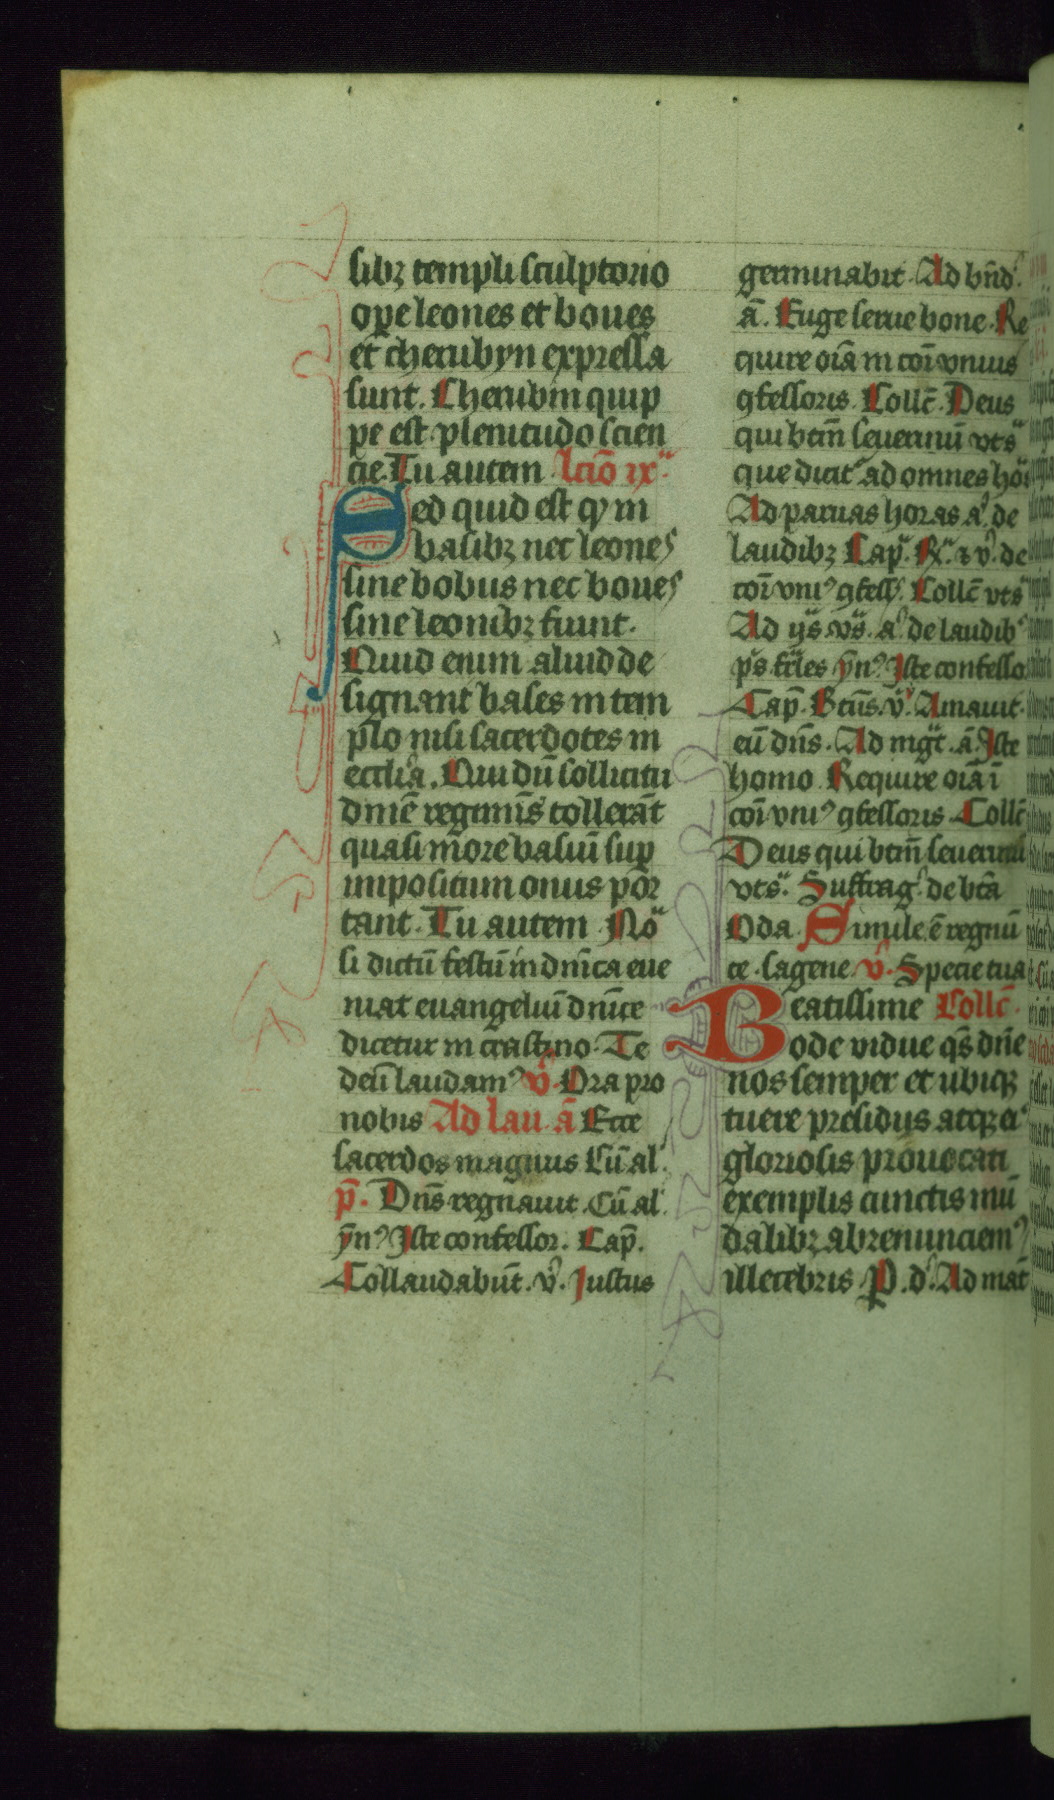 sibꝫ templi sculptorio
oꝑe leones et boues
et cherubyn expressa
sunt. Cherubin quip
pe est plenitudo scien
cie. Tu autem lcīo ix
Sed quid est ꝙ in
basibꝫ nec leones
sine bobus nec boues
sine leonibꝫ fiunt.
Quid enim aliud de
signant bases in tem
plo nisi sacerdotes in
ecclīa. Qui dū sollicitu
dinē regimīs tollerāt
quasi more basiū suꝑ
impositum onus por
tant. Tu autem No
si dictū festū in dnīca eue
niat euangeliū dnīce
dicetur in crastino. Te
deū laudam⁹ v̄. Ora pro
nobis Ad lau ā Ecce
sacerdos magnus Cū al.
p̄. Dn̄s regnauit. Cū al.
ȳn⁹ Iste confessor. Cap̄.
Collaudabūt. v̄. Iustus
germinabit. Ad bn̄d.
ā. Euge serue bone. Re
quire oīa in coī vnius
ꝯfessoris. Collc̄. Deus
qui btm̄ seuerinū vts
que dicit ad omnes ho
Ad paruas horas a de
laudibꝫ Cap. R. ⁊ v̄. de
coī vni⁹ ꝯfess. Collc̄ vts
Ad ijs vs̄. a de laudib
ps̄ fr̄les ȳn⁹ Iste confesso
Cap̄. Btūs. v̄. Amauit
eū dn̄s. Ad mgt̄. ā. Iste
homo Require oīa ī
coī vni⁹ ꝯfessoris. Collc̄
Deus qui btm̄ seuerinū
vts. Suffrag. de btā
Oda. Simile ē regnū
ce. sagene. v̄. Specie tua
Beatissime Collc̄.
ode vidue qs̄ dn̄e
nos semper et ubiqꝫ
tuere presidijs atqꝫ ei
gloriosis prouocati
exemplis cunctis mū
dalibꝫ abrenunciem⁹
illecebris P. d. Ad mat̄